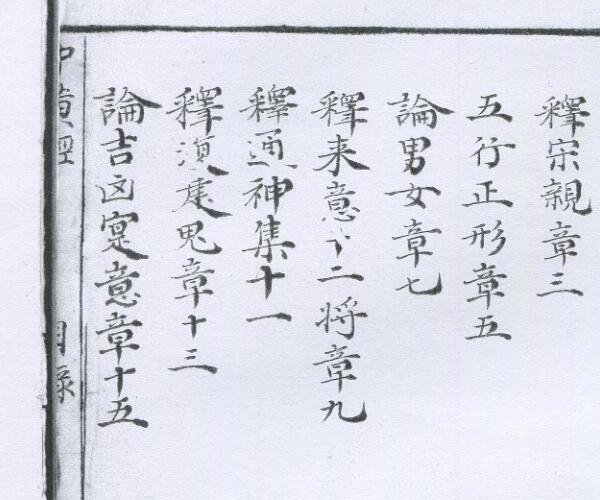 釋宗親章三
五行正形章五
論男女章七
釋来意十二将章九
釋通神集十一
釋鬼章十三
論吉凶寔意章十五
目录